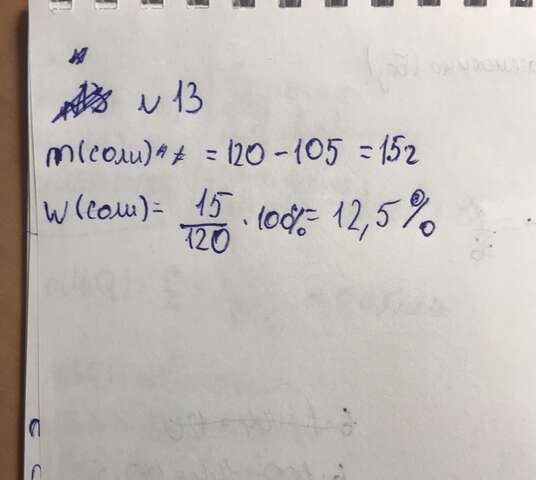 N 13
m(соли) = 120 - 105 = 15г
W(соли) = 15/120 · 100% = 12,5%